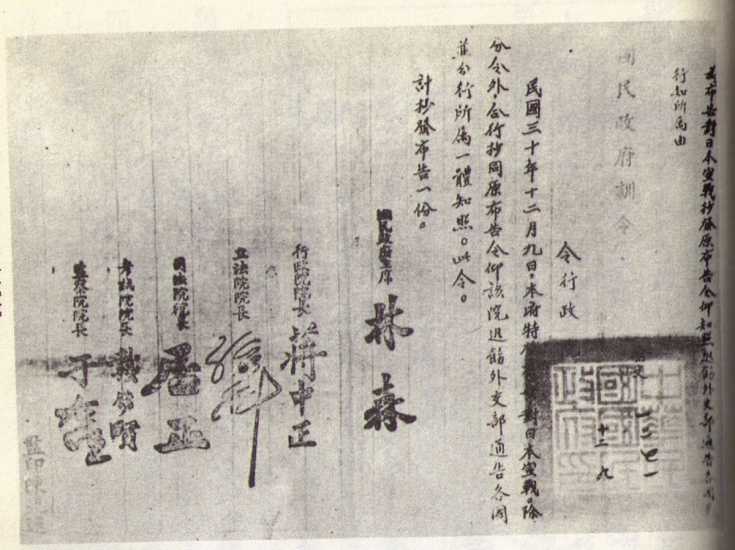 為布告對日本宣戰抄發原布告令仰知照迅飭外交部通告各國
行知所屬由
國民政府訓令
令行政
十二 九
民國三十年十二月九日。本府特 對日本宣戰。除
分令外，合行抄同原布告令仰該院迅飭外交部通告各國
並分行所屬一體知照。此令。
計抄發布告一份。
國民政府主席 林森
行政院院長 蔣中正
立法院院長 孫科
司法院院長 居正
考試院院長 戴傳賢
監察院院長 于右任
監印陳